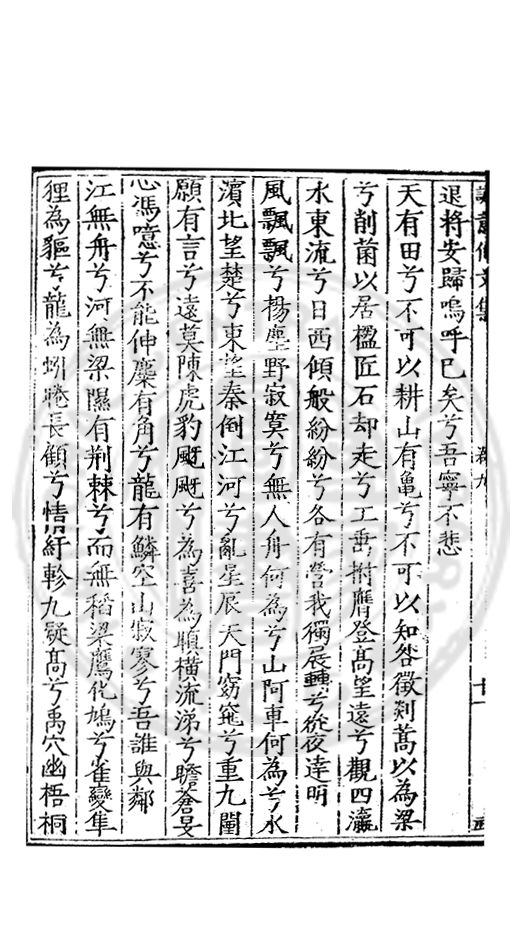 卷九
退將安歸嗚呼已矣兮吾寧不悲
天有田兮不可以耕山有龜兮不可以知咎徵剡蒿以為梁
兮削菌以居楹匠石却走兮工垂拊膺登髙望遠兮觀四瀛
水東流兮日西傾般紛紛兮各有營我獨展轉兮從夜達明
風飄飄兮揚塵野寂寞兮無人舟何為兮山阿車何為兮水
濱北望楚兮東望秦倒江河兮亂星辰天門窈窕兮重九闉
願有言兮遠莫陳虎豹兮為喜為瞋横流涕兮瞻蒼旻
心馮噫兮不能伸麋有角兮龍有鱗空山寂寥兮吾誰與鄰
江無舟兮河無梁隰有荆棘兮而無稻梁鷹化鳩兮雀變隼
狸為貙兮龍為蚓睠長顧兮情紆軫九疑髙兮禹穴幽梧桐